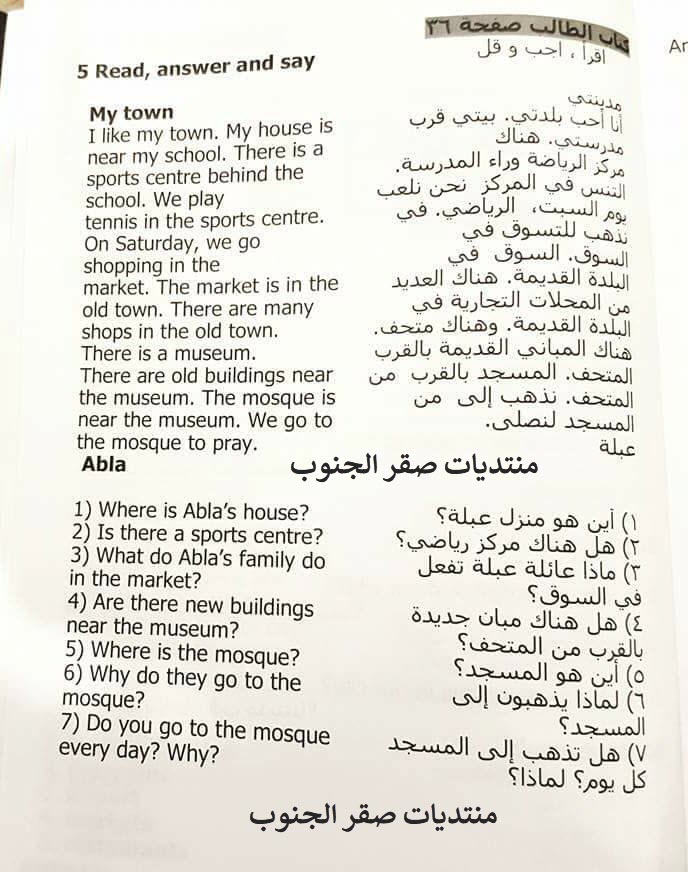 كتاب الطالب صفحة ٣٦
اقرأ ، اجب و قل
Ar
5 Read, answer and say
My town
I like my town. My house is
near my school. There is a
sports centre behind the
school. We play
tennis in the sports centre.
On Saturday, we go
shopping in the
market. The market is in the
old town. There are many
shops in the old town.
There is a museum.
There are old buildings near
the museum. The mosque is
near the museum. We go to
the mosque to pray.
Abla
مدينتي
أنا أحب بلدتي. بيتي قرب
مدرستي. هناك
مركز الرياضة وراء المدرسة.
التنس في المركز نحن نلعب
يوم السبت، الرياضي. في
نذهب للتسوق في
السوق. السوق في
البلدة القديمة. هناك العديد
من المحلات التجارية في
البلدة القديمة. وهناك متحف.
هناك المباني القديمة بالقرب
المتحف. المسجد بالقرب من
المتحف. نذهب إلى من
المسجد لنصلى.
عبلة
منتديات صقر الجنوب
1) Where is Abla's house?
2) Is there a sports centre?
3) What do Abla's family do
in the market?
4) Are there new buildings
near the museum?
5) Where is the mosque?
6) Why do they go to the
mosque?
7) Do you go to the mosque
every day? Why?
١) أين هو منزل عبلة؟
٢) هل هناك مركز رياضي؟
٣) ماذا عائلة عبلة تفعل
في السوق؟
٤) هل هناك مبان جديدة
بالقرب من المتحف؟
٥) أين هو المسجد؟
٦) لماذا يذهبون إلى
المسجد؟
٧) هل تذهب إلى المسجد
كل يوم؟ لماذا؟
منتديات صقر الجنوب